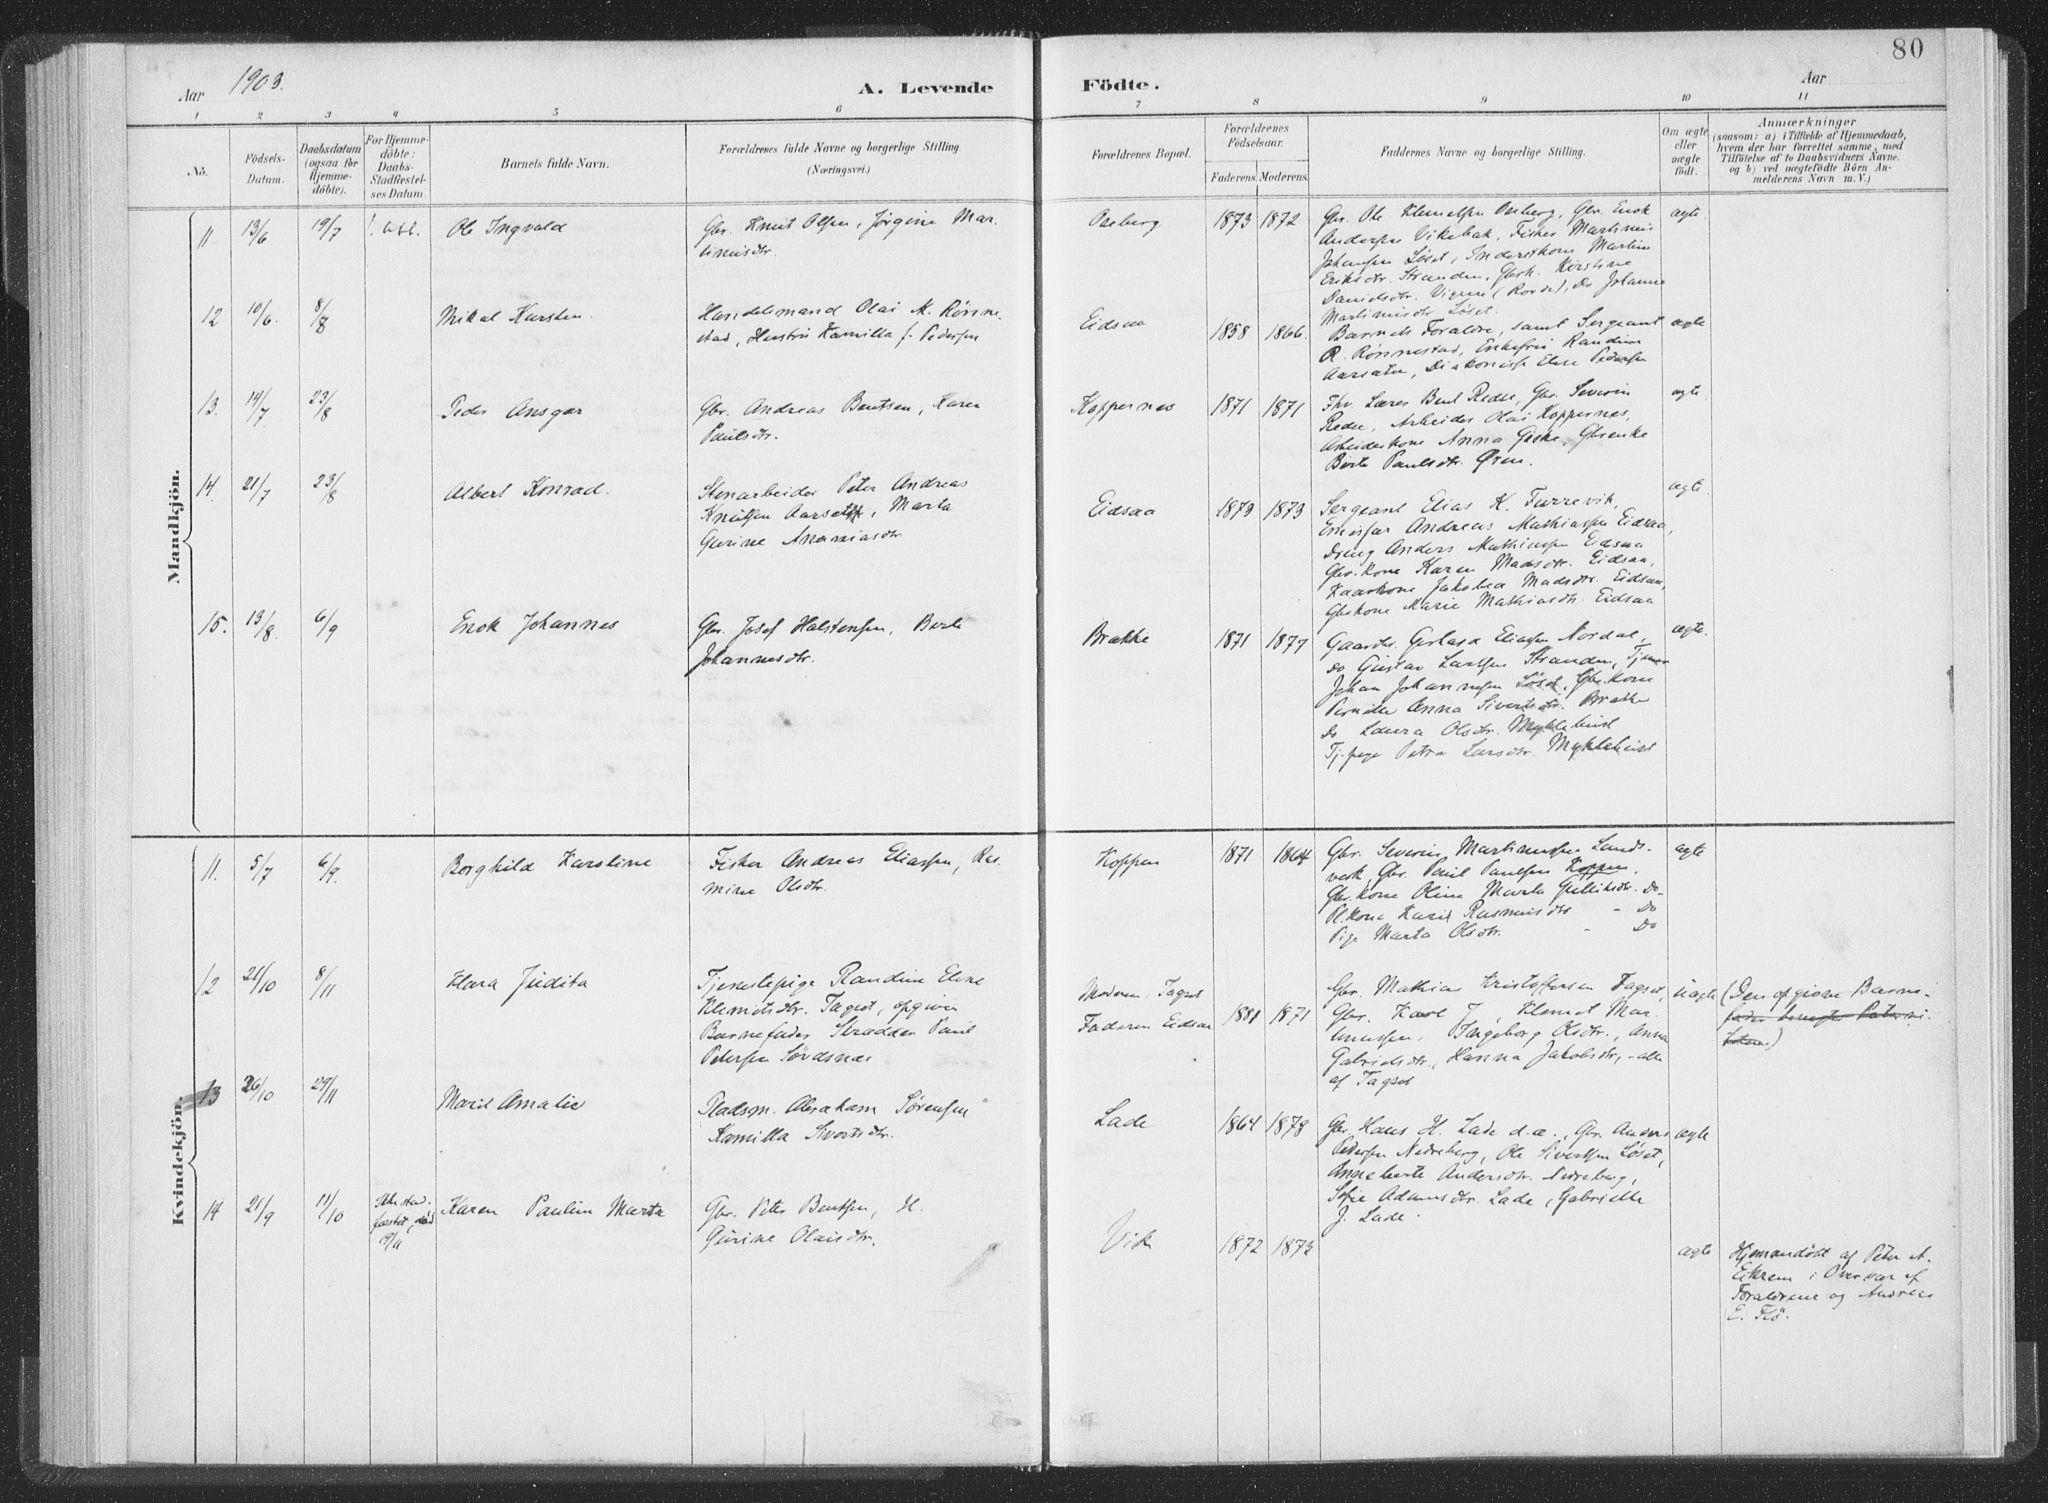 80
Aar 1903.
A. Levende Födte.
Aar
1 2 3 4 5 6 7 8 9 10 11
No.
Födsels-Datum.
Daabsdatum (ogsaa for Hjemme-döbte).
For Hjemme-döbte: Daabs-Stadfæstel-ses Datum.
Barnets fulde Navn.
Forældrenes fulde Navne og borgerlige Stilling.
(Næringsvei.)
Forældrenes Bopæl.
Forældrenes Födselsaar.
Faderens. Moderens.
Faddernes Navne og borgerlige Stilling.
Om ægte eller uægte födt.
Anmærkninger
(saasom: a) i Tilfælde af Hjemmedaab,
hvem der har forrettet samme, med
Tilföielse af to Daabsvidners Navne.
og b) ved uægtefödte Börn An-
melderens Navn m. V.)
Mandkjön.
11. 13/6 19/7
Ole Ingvald
Gbr. Knut Olsen, Jørgine Mar-
tinusdtr.
Aasberg 1873 1872
Gbr. Ole Klemetsen Aasberg, Gbr. Enok
Andersen Vikebak, Fisker Martinus
Johansen Løset, Inderstkone Martine
Eriksdtr. Stranden, Gbrk. Kirstine
Danielsdtr. Vigen (Rovde), Do Johanne
Martinusdtr. Løset.
ægte
12 10/6. 8/8
Mikal Karsten.
Handelsmand Olai M. Rønne-
stad, Hustru Kamilla f. Pedersen
Eidsaa 1858 1866.
Barnets Forældre, samt Sergeant
R. Rønnestad, Enkefru Randine
Aarsæter, Diakonisse Elise Pedersen
ægte
13. 14/7 23/8
Peder Ansgar
Gbr. Andreas Bentsen, Karen
Paulsdtr.
Koppernes 1871 1871
Fhv. Lærer Bent Redse, Gbr. Severin
Redse, Arbeider Olai Koppernes,
Arbeiderkone Anna Giske, Gbrenke
Birte Paulsdtr. Øren.
ægte
14. 21/7 23/8
Albert Konrad.
Stenarbeider Peter Andreas
Knutsen Aarseth, Marta
Gurine Ananiasdtr
Eidsaa 1873 1873
Sergeant Elias K. Furrevik,
Emissær Andreas Mathiassen Eidsaa,
Dreng Anders Mathiassen Eidsaa
Gbr.kone Karen Madsdtr. Eidsaa,
Kaarkone Jakobea Madsdtr. Eidsaa,
Gbrkone Marie Mathiasdtr. Eidsaa
ægte
15. 13/8 6/9
Enok Johannes
Gbr. Josef Halstensen, Berte
Johannesdtr.
Brække 1871 1877
Gaardbr. Gerhard Eliassen Nordal,
Do Gustav Larssen Stranden, Tjener
Johan Johannesen Løset, Gbr.kone
Pernille Anna Sivertsdtr. Brække
Do Laura Olsdtr. Myklebust
Tj.pige Petra Larsdtr. Myklebust
ægte
Kvindekjön.
11. 5/7 6/9.
Borghild Karoline
Fisker Andreas Eliassen, Ras-
mine Olsdtr.
Koppen 1871 1864
Gbr. Severin Martinussen Lands-
verk, Gbr. Paul Paulsen Koppen,
Gbr.kone Oline Marta Gulliksdtr. Do
Pl.kone Karit Rasmusdtr - Do
Pige Marta Olsdtr. - Do
ægte
12 21/10 8/11
Klara Judita
Tjenestepige Randine Elene
Klemetsdtr. Tagset, opgiven
Barnefader Skrædder Paul
Petersen Sørdsnes
Moderen Tagset
Faderen Eidsaa 1881 1871
Gbr. Mathias Kristoffersen Tagset,
Gbr. Karl J , Klemet Mar-
tinussen, Ingeborg Olsdtr., Anna
Gabrielsdtr., Hanna Jakobsdtr, - alle
af Tagset
uægte
(Den opgivne Barne-
fader benegter Paterni-
teten.)
13 26/10 29/11
Marit Amalie
Pladsm. Abraham Sørensen
Kamilla Sivertsdtr.
Lade 1864 1878
Gbr. Hans H. Lade d.æ., Gbr. Anders
Pedersen Nedreberg, Ole Sivertsen Løset,
Anneberte Andersdtr. Nedreberg,
Sofie Adamsdtr. Lade, Gabrielle
J. Lade.
ægte
14 21/9 11/10
Karen Pauline Marta
Gbr. Peter Bentsen, H.
Gurine Olaisdtr.
Vik 1872 1873
ægte
Hjemmedöbt af Peter A.
Eikrem i Overvær af
Forældrene og Andreas
E. Flö.